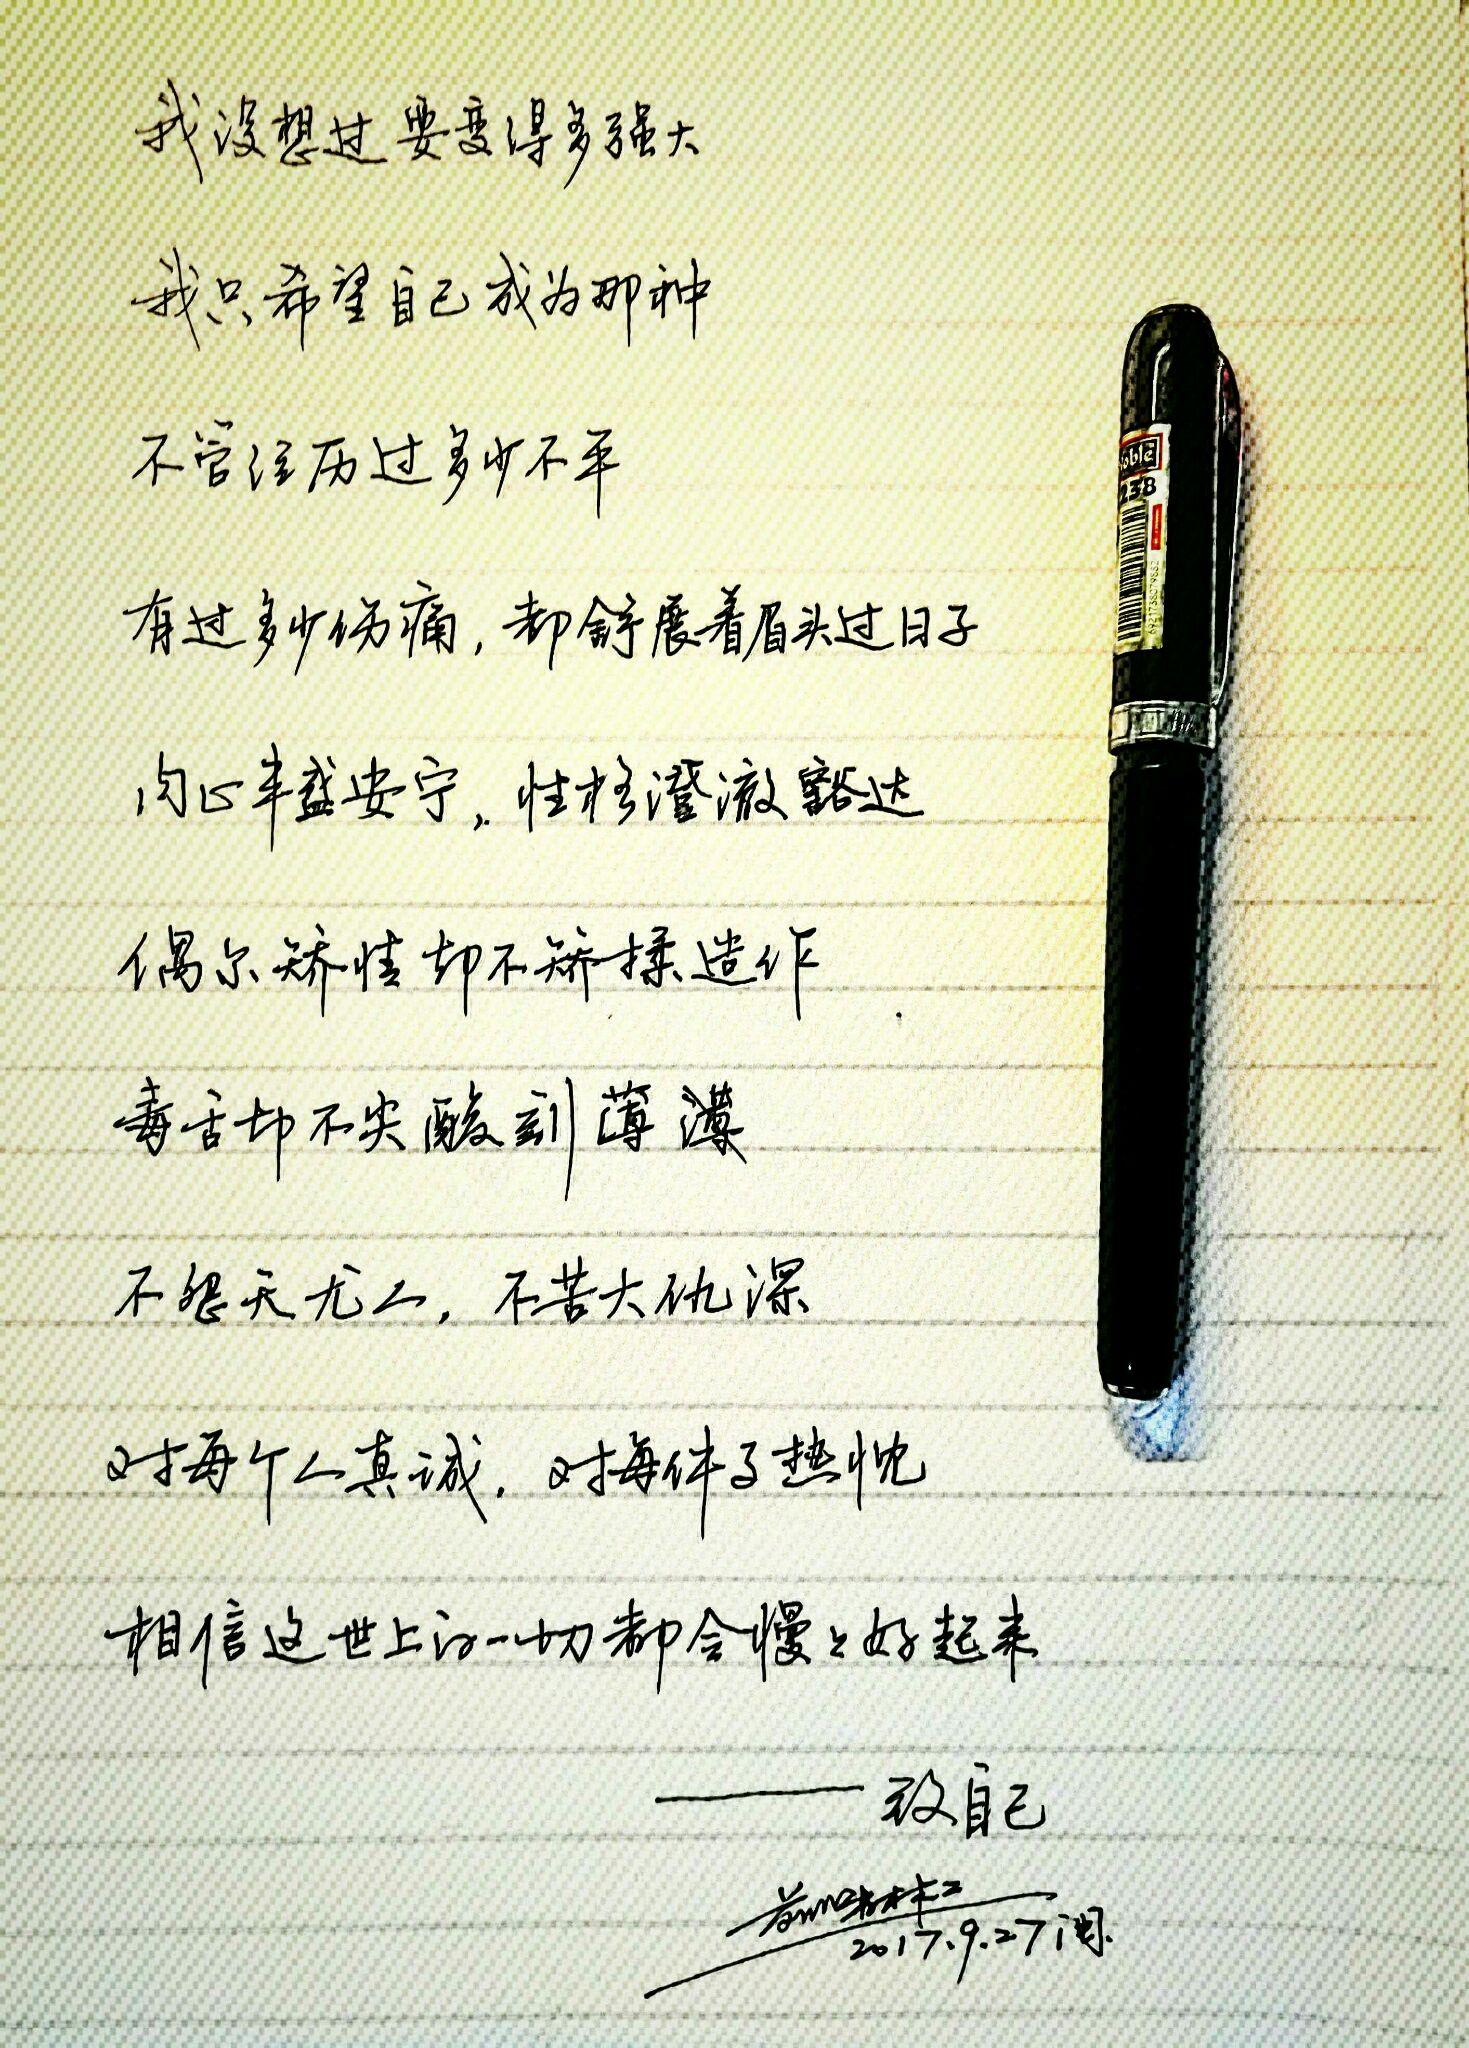 我没想过要变得多强大
我只希望自己成为那种
不管经历过多少不平
有过多少伤痛，却舒展着眉头过日子
内心丰盛安宁，性格澄澈豁达
偶尔矫情却不矫揉造作
毒舌却不尖酸刻薄薄
不怨天尤人，不苦大仇深
对每个人真诚，对每件事热忱
相信这世上的一切都会慢慢好起来
——致自己
2017.9.27
oble
238
6921738079882